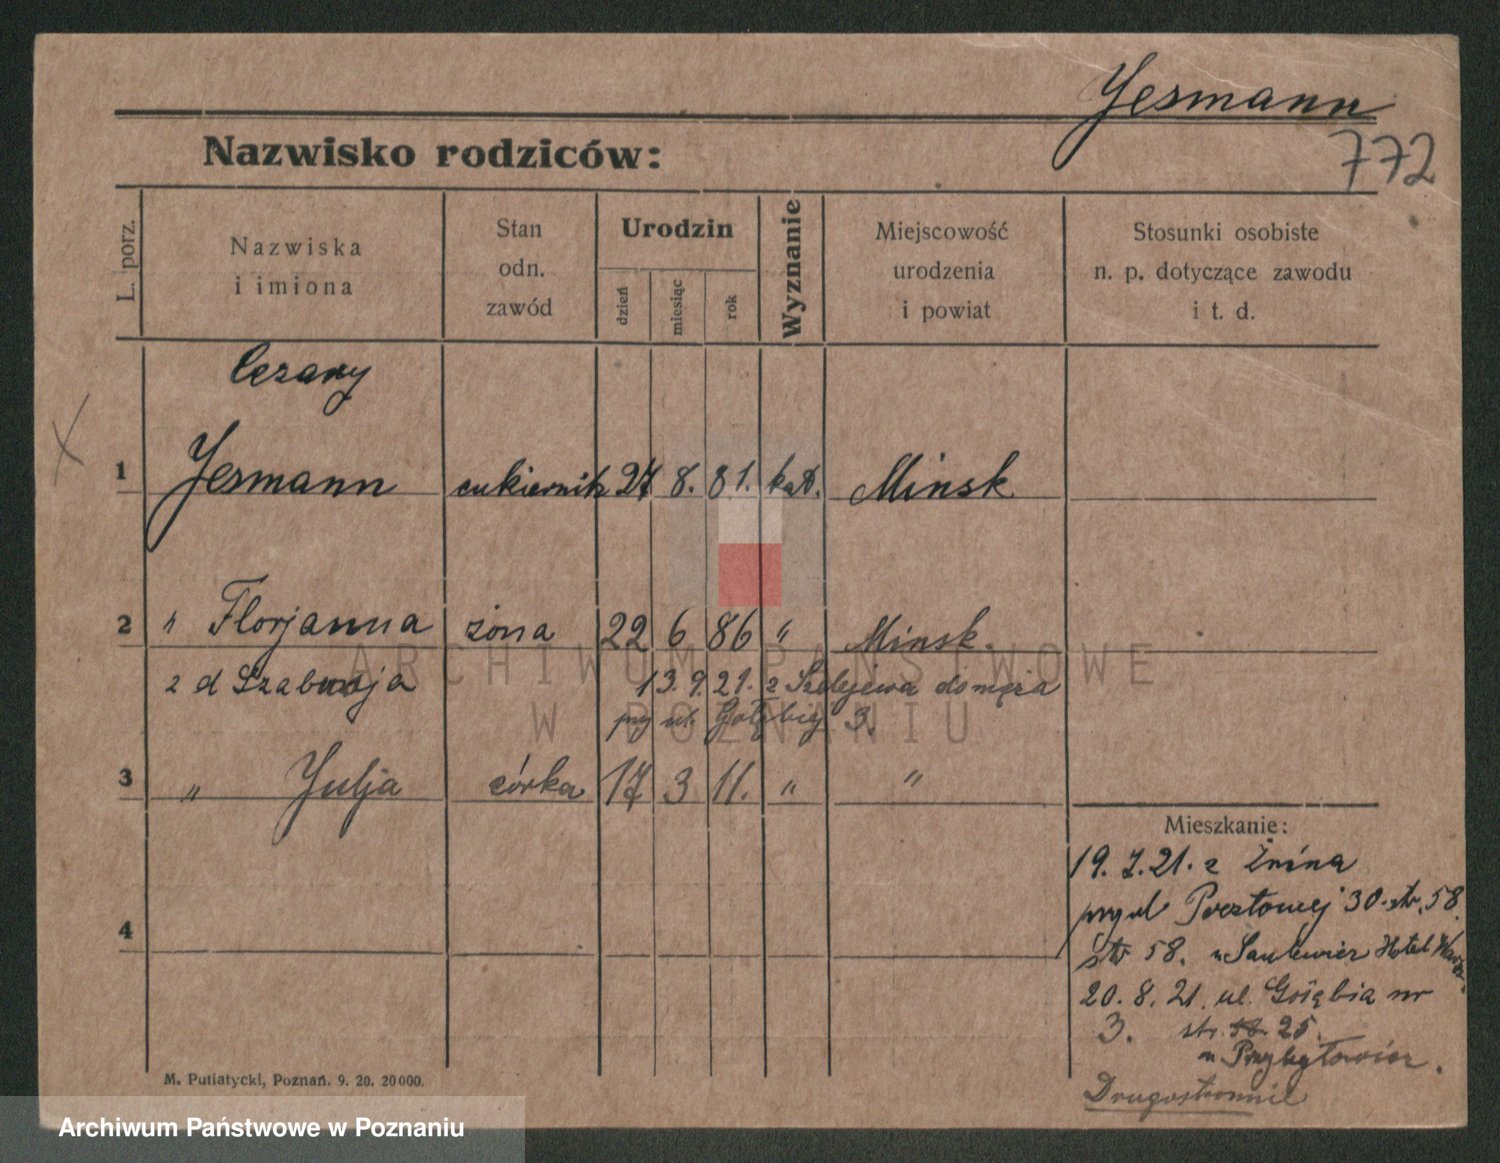 Yesmann
772
Nazwisko rodziców:
L. porz.
Nazwiska
i imiona
Stan
odn.
zawód
Urodzin
dzień
miesiąc
rok
Wyznanie
Miejscowość
urodzenia
i powiat
Stosunki osobiste
n. p. dotyczące zawodu
i t. d.
Cezary
1 Yesmann cukiernik 27 8. 81. kat. Minsk
2 " Florjanna żona 22 6 86 " Minsk.
z d 13. 9. 21. z do męża
ul. Gołębiej 3.
3 " Yulja córka 17 3 11. " "
4
Mieszkanie:
19. 7. 21. z Żnina
przy ul Pocztowej 30. str. 58
str 58. Hotel
20. 8. 21. ul. Gołębia nr
3. str. 58. 25.
Drugostronnie
M. Putiatycki, Poznań. 9. 20. 20000.
ARCHIWUM PAŃSTWOWE
W POZNANIU
Archiwum Państwowe w Poznaniu